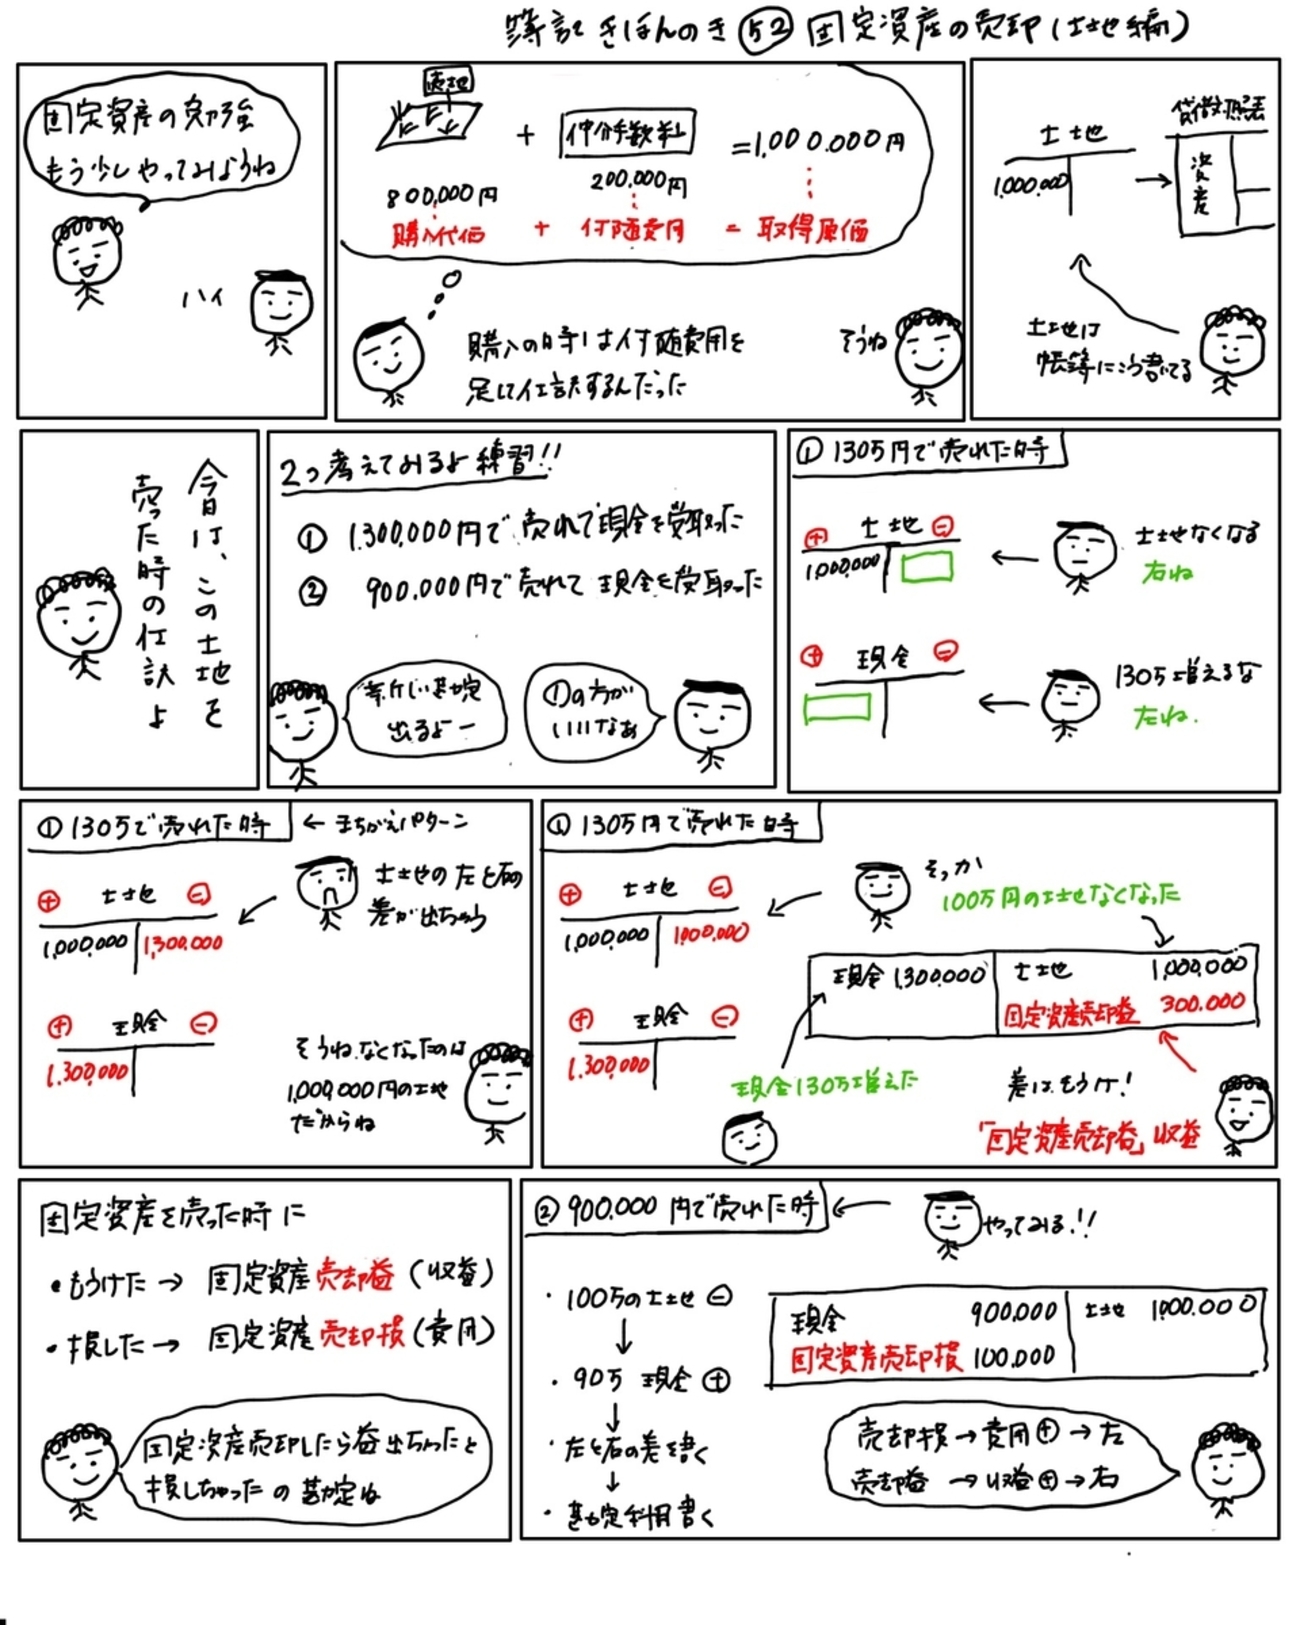 簿記きほんのき 52 固定資産の売却(土地編)
固定資産の勉強
もう少しやってみようね
ハイ
売地
+ 仲介手数料 =1,000.000円
800,000円 200.000円
購入代価 + 付随費用 = 取得原価
購入の時は付随費用を
足して仕訳するんだった
そうね
土地
1,000.000
貸借対照表
資産
土地は
帳簿にこう書いてる
今日は、この土地を
売った時の仕訳よ
2つ考えてみるよ練習!!
① 1.300,000円で売れて現金を受取った
② 900.000円で売れて現金を受取った
新しい勘定
出るよー
①の方が
いいなあ
① 130万円で売れた時
⊕ 土地 ⊖
1,000,000
土地なくなる
右ね
⊕ 現金 ⊖
130万増えるな
左ね.
① 130万で売れた時 ← まちがえパターン
⊕ 土地 ⊖
1,000,000 1,300.000
土地の左と右の
差が出ちゃう
⊕ 現金 ⊖
1.300,000
そうね.なくなったのは
1,000,000円の土地
だからね
① 130万円で売れた時
⊕ 土地 ⊖
1,000,000 1000.000
そっか
100万円の土地なくなった
現金 1,300.000 土地 1,000,000
固定資産売却益 300.000
⊕ 現金 ⊖
1.300.000
現金130万増えた
差は、もうけ!
「固定資産売却益」収益
固定資産を売った時に
・もうけた → 固定資産売却益(収益)
・損した → 固定資産売却損(費用)
固定資産売却したら益出ちゃったと
損しちゃったの勘定ね
② 900.000円で売れた時
やってみる!!
・100万の土地 ⊖
↓
・90万 現金 ⊕
↓
・左と右の差を書く
↓
・勘定科目書く
現金 900.000 土地 1,000.000
固定資産売却損 100.000
売却損→費用⊕→左
売却益→収益⊕→右